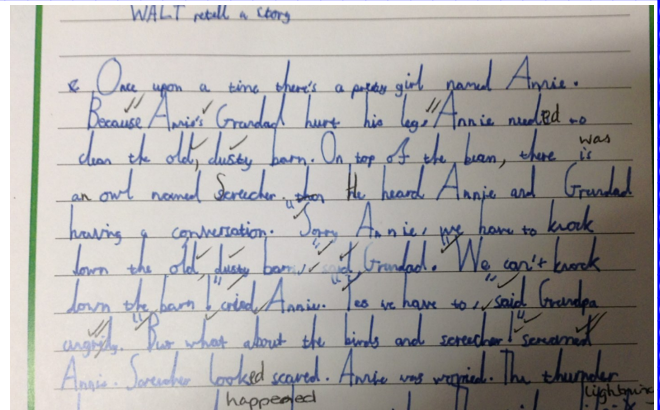 WALT retell a story
Once upon a time there's a pretty girl named Annie.
Because Annie's Grandad hurt his leg, Annie needed to
clean the old, dusty barn. On top of the bean, there is was
an owl named Screecher. He heard Annie and Grandad
having a conversation. "Sorry Annie, we have to knock
down the old, dusty barn," said Grandad. "We can't knock
down the barn!" cried Annie. "Yes we have to," said Grandpa
angrily. "But what about the birds and screecher!" screamed
Annie. Screecher looked scared. Annie was worried. The thunder
happened lightning